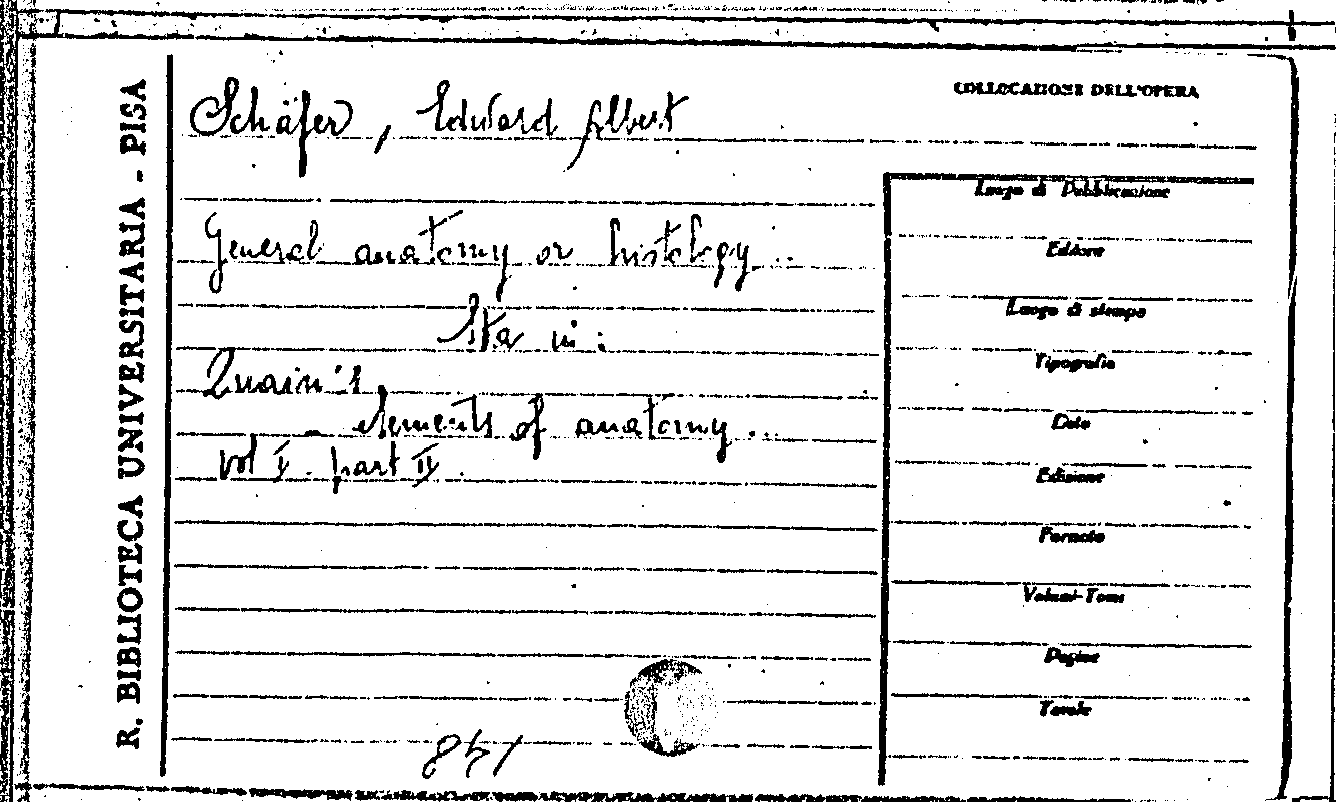 R. BIBLIOTECA UNIVERSITARIA - PISA
COLLOCAZIONE DELL'OPERA
Schäfer, Edward Albert
General anatomy or histology...
Sta in:
Quain's
elements of anatomy...
vol I. part II.
Luogo di Pubblicazione
Editore
Luogo di stampa
Tipografia
Data
Edizione
Formato
Volumi-Tomi
Pagine
Tavole